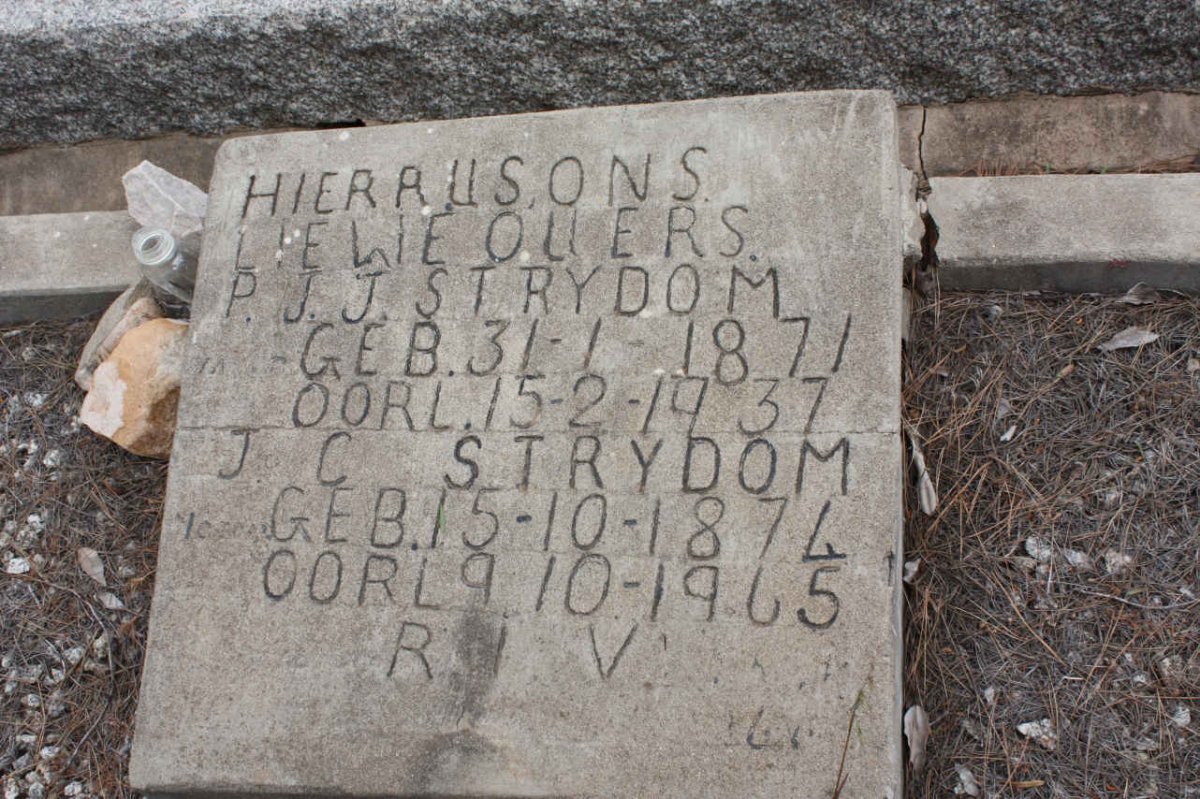 HIERR.US.ONS.
LIEWE OUERS.
P. J. J. STRYDOM
GEB. 31-1-1871
OORL. 15-2-1937
J C STRYDOM
GEB. 15-10-1874
OORL 9 10-1965
R I V